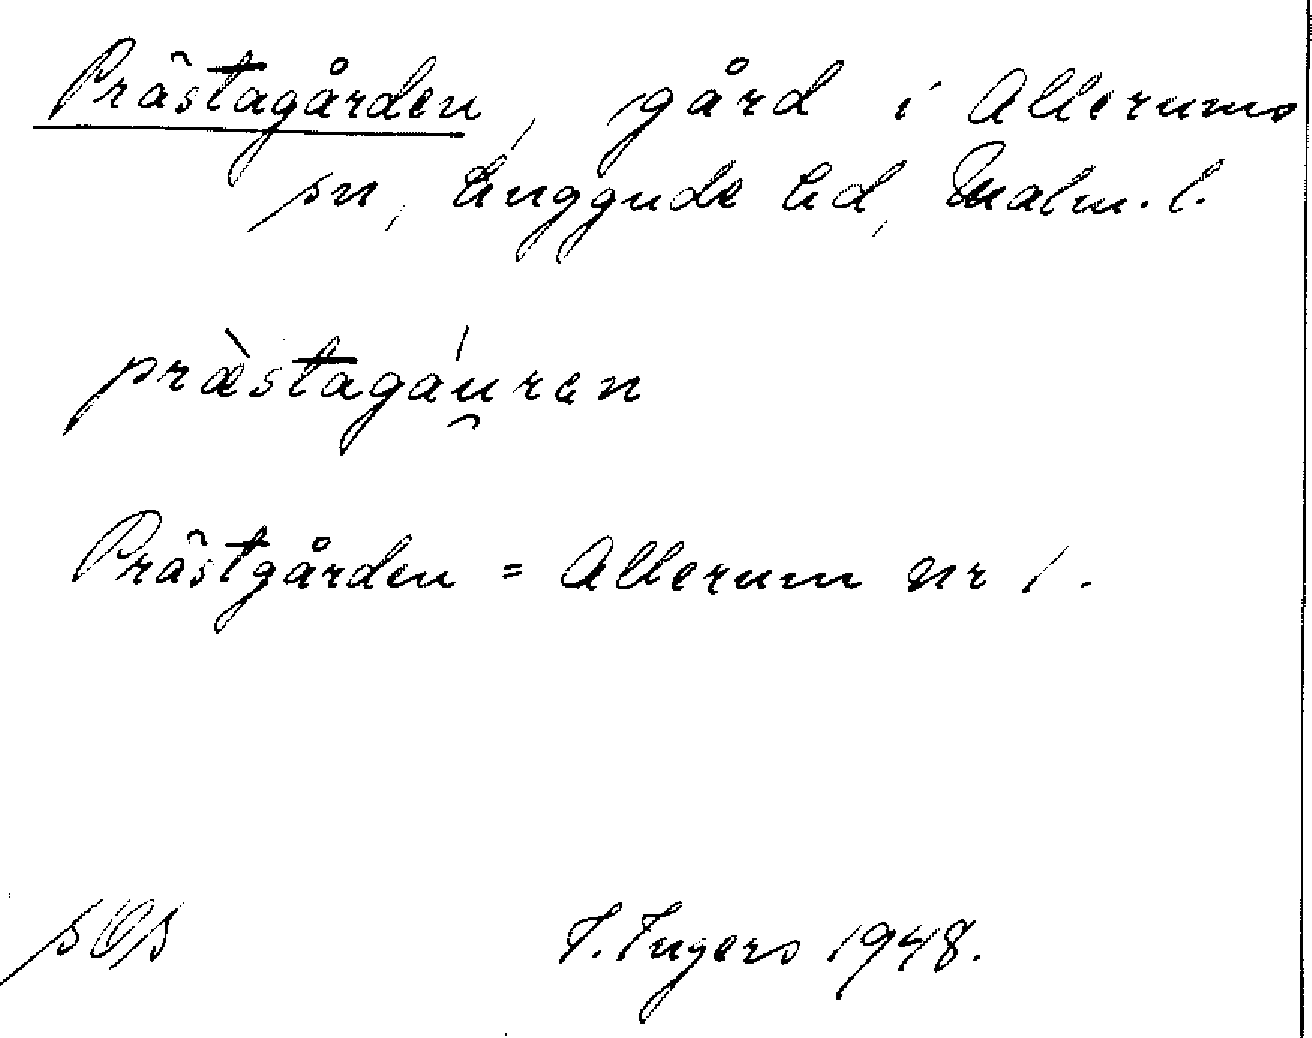 Prästagården, gård i Allerums
sn, Luggude hd, Malm. l.
præ̀stagáu̯ren
Prästgården = Allerum nr 1.
I. Ingers 1948.